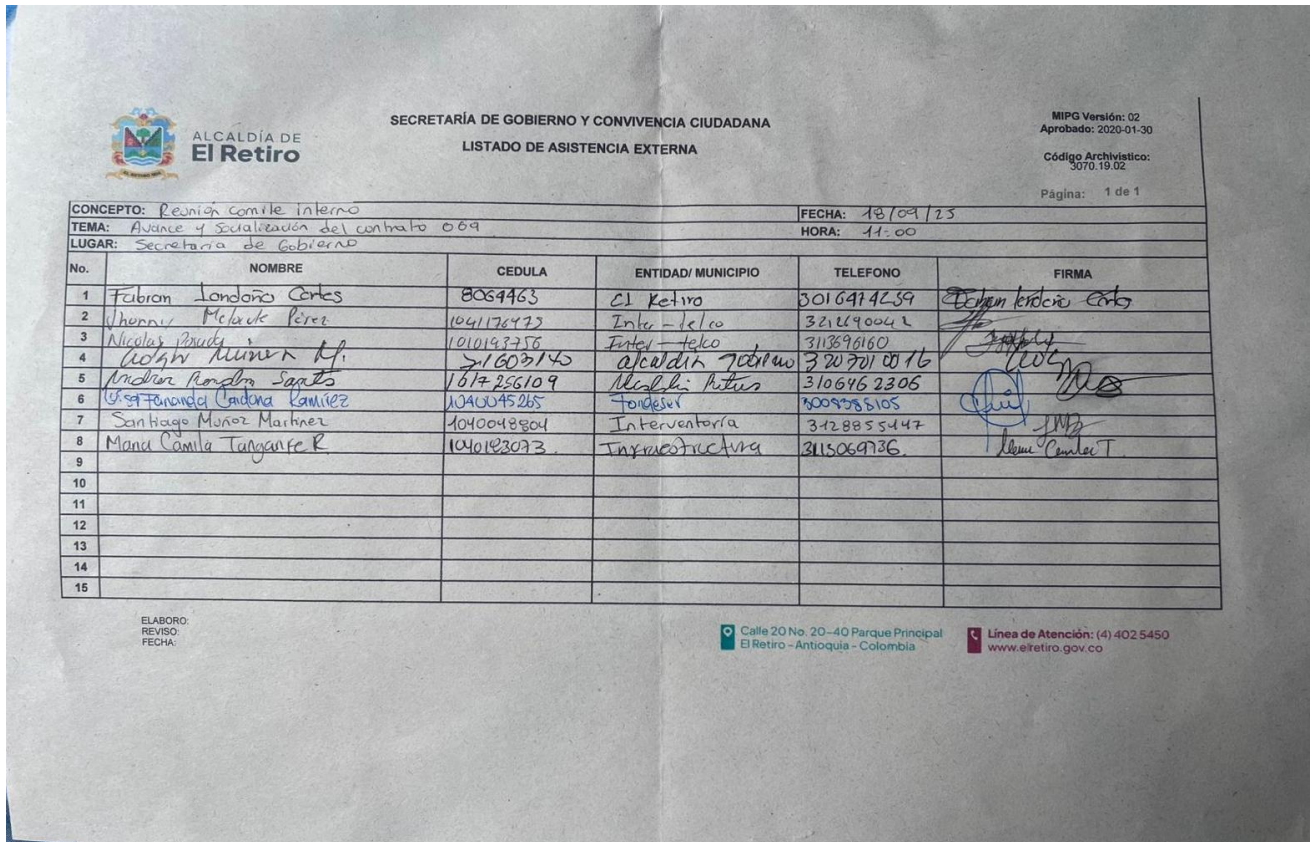 ALCALDÍA DE
El Retiro
EL RETIRO
SECRETARÍA DE GOBIERNO Y CONVIVENCIA CIUDADANA
LISTADO DE ASISTENCIA EXTERNA
MIPG Versión: 02
Aprobado: 2020-01-30
Código Archivistico:
3070.19.02
Página: 1 de 1
CONCEPTO: Reunión comite interno FECHA: 18/09/25
TEMA: Avance y Socialización del contrato 069 HORA: 11:00
LUGAR: Secretaria de Gobierno
No. NOMBRE CEDULA ENTIDAD/ MUNICIPIO TELEFONO FIRMA
1 Fabian Londoño Cortes 8064463 El Retiro Londoño
2 Jhonny Pérez Inter-telco
3 Nicolas 1010193756 Inter-telco 3113696160
4 71603140 alcaldia 3207010016
5 3106462306
6 Fernanda Cardona Ramirez 1040045265 Fondeser
7 Santiago Muñoz Martinez 1040048804 Interventoría 3128855447
8 Maria Camila R 1040183073. Infraestructura 3113069736.
9
10
11
12
13
14
15
ELABORO:
REVISO:
FECHA:
Calle 20 No. 20-40 Parque Principal
El Retiro - Antioquia - Colombia
Línea de Atención: (4) 402 5450
www.elretiro.gov.co